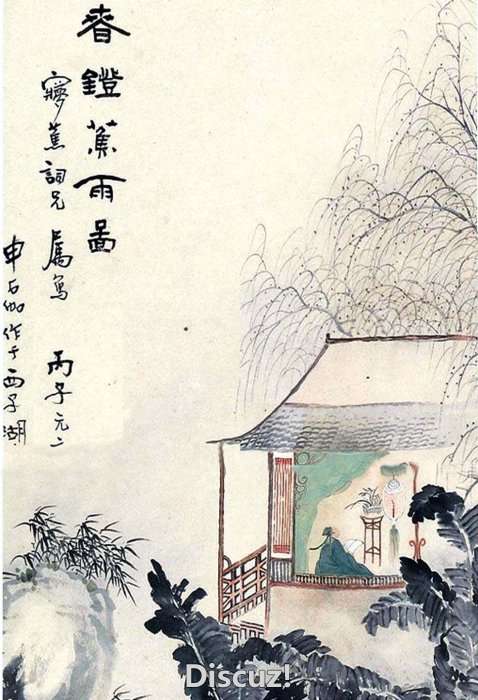 春鐙蕉雨啚
寱蕉詞兄屬寫 丙子元二
申石伽作于西子湖
Discuz!